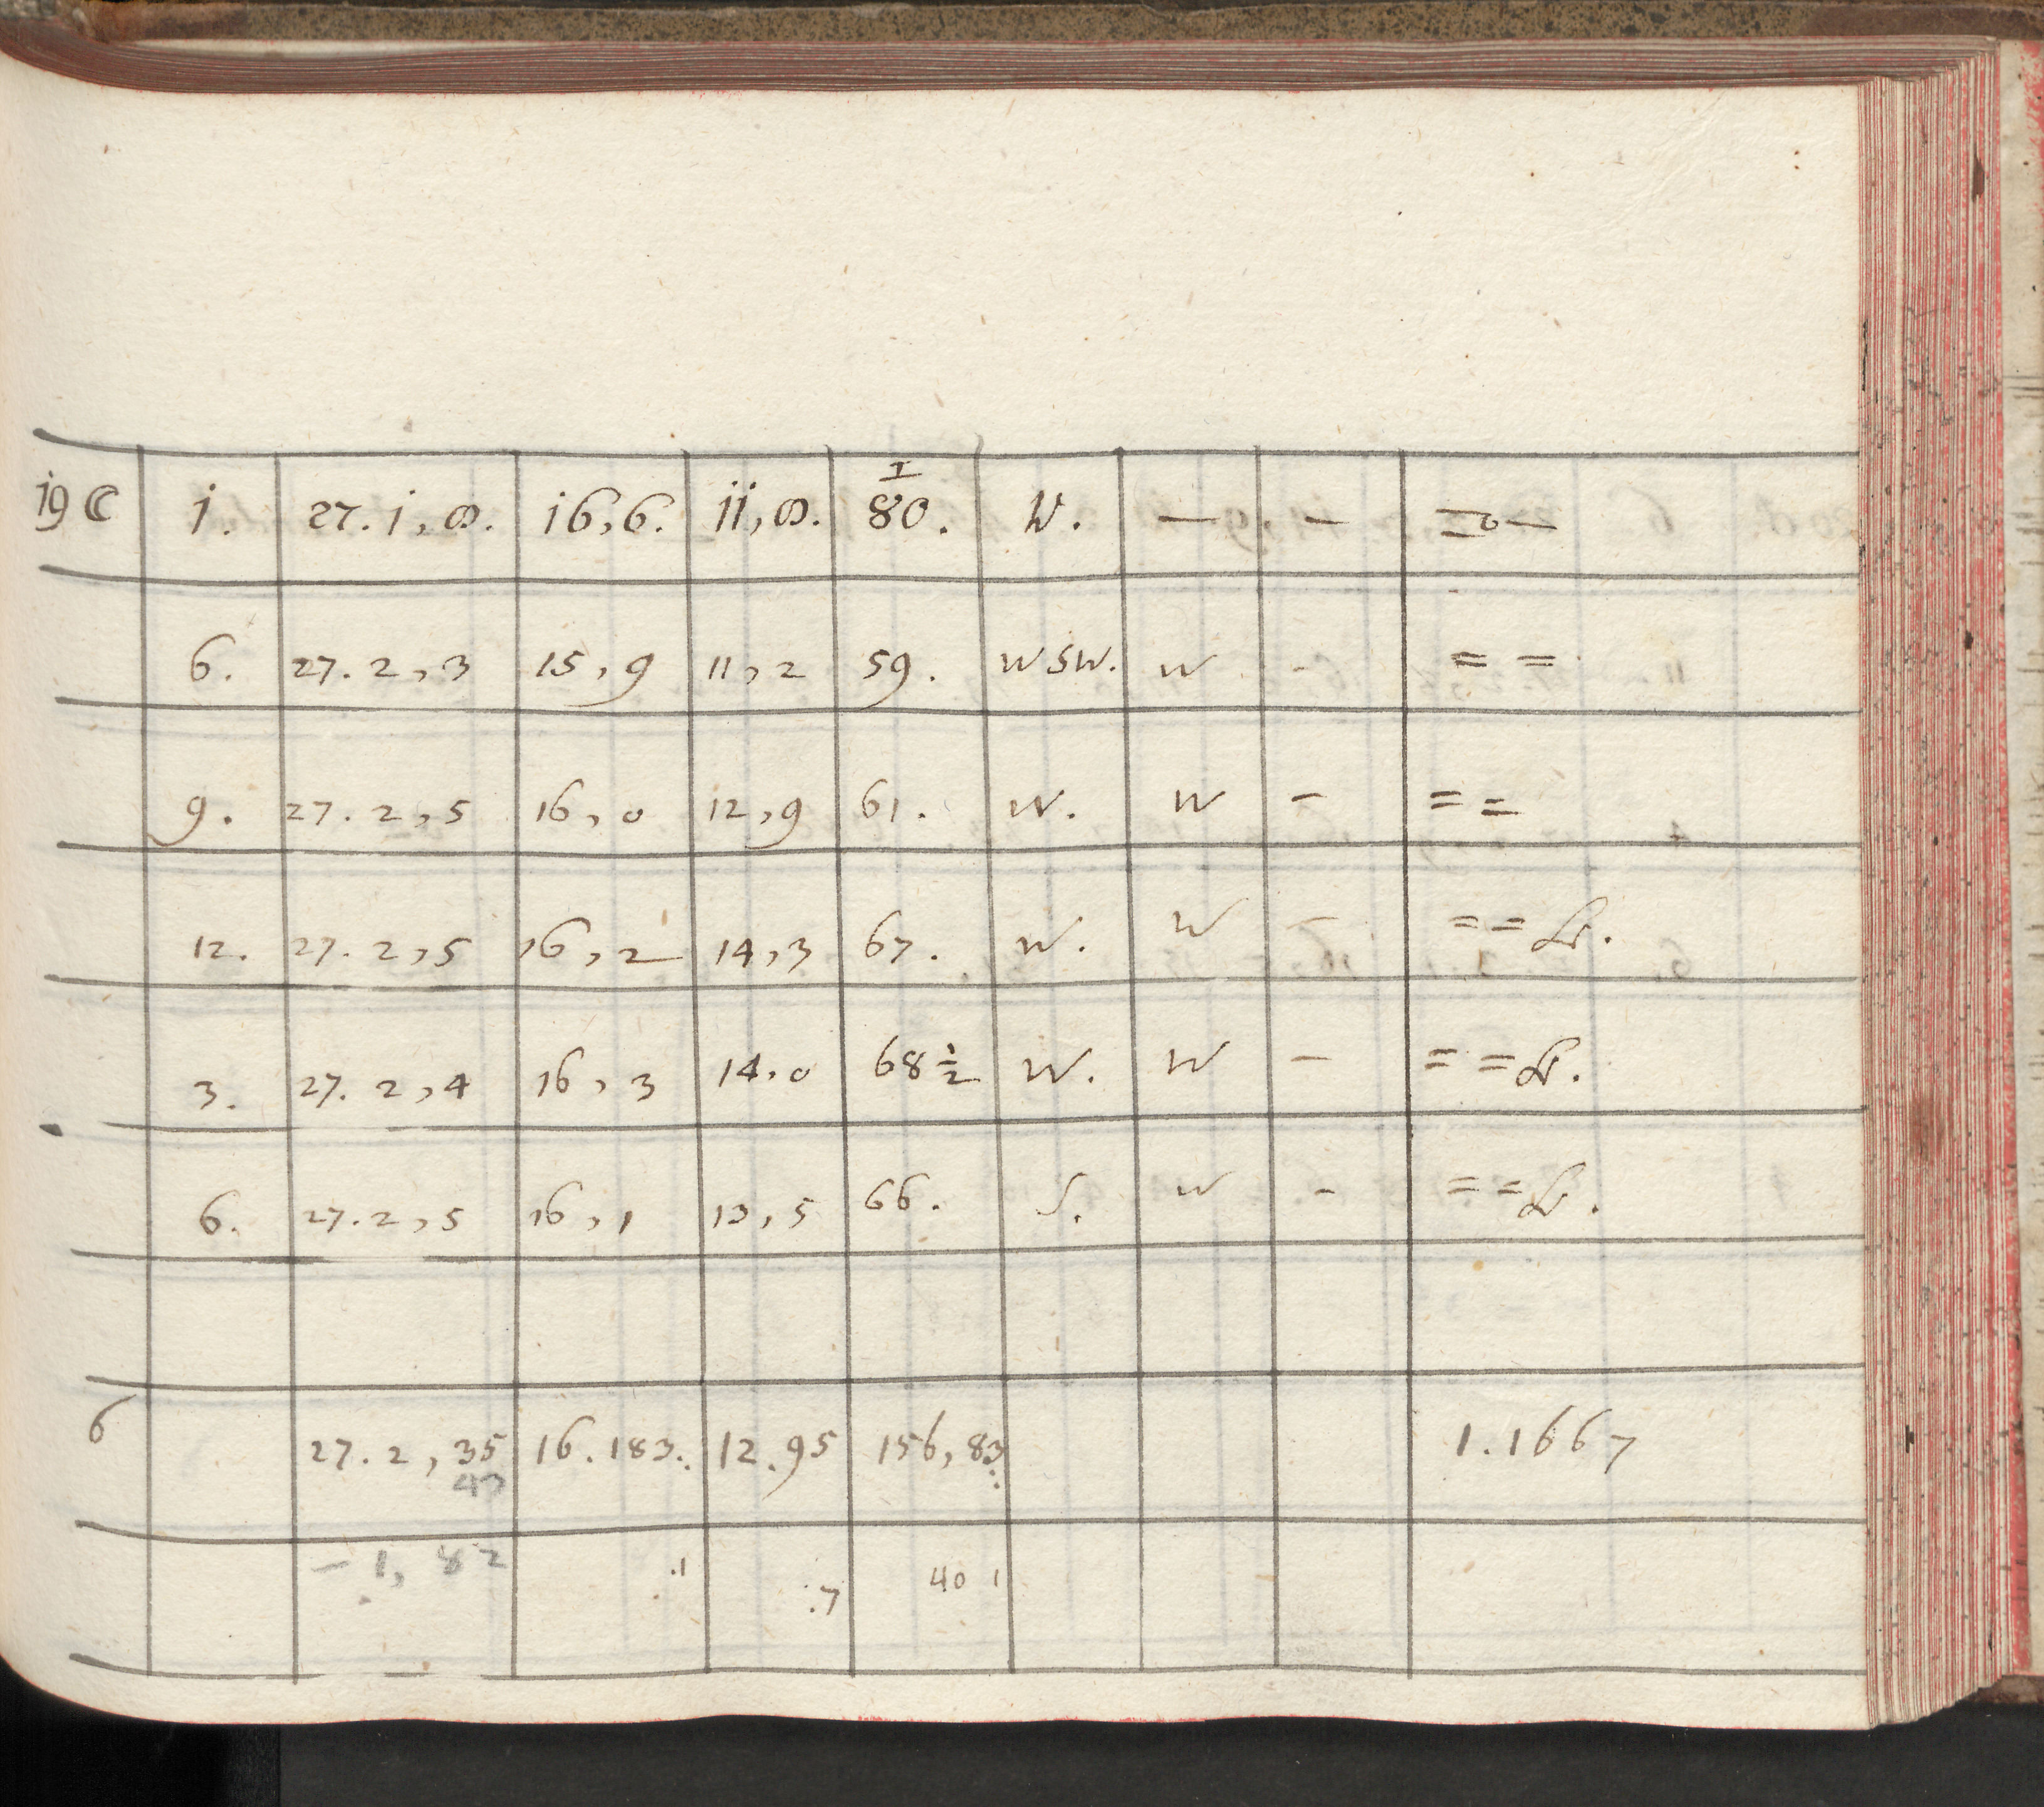 19 ☾ 1. 27. 1, 8. 16, 6. 11, 8. I 80. W. — - =o—
6. 27. 2, 3 15, 9 11, 2 59. WSW. W - = =
9. 27. 2, 5 16, 0 12, 9 61. W. W - = =
12. 27. 2, 5 16, 2 14, 3 67. W. W - = =
3. 27. 2, 4 16, 3 14, 0 68 ½ W. W - = =
6. 27. 2, 5 16, 1 13, 5 66. S. W - = =
6 27. 2, 35 16. 183.. 12. 95 156, 83 1. 1667
43
- 1, 82 .1 .7 40 1